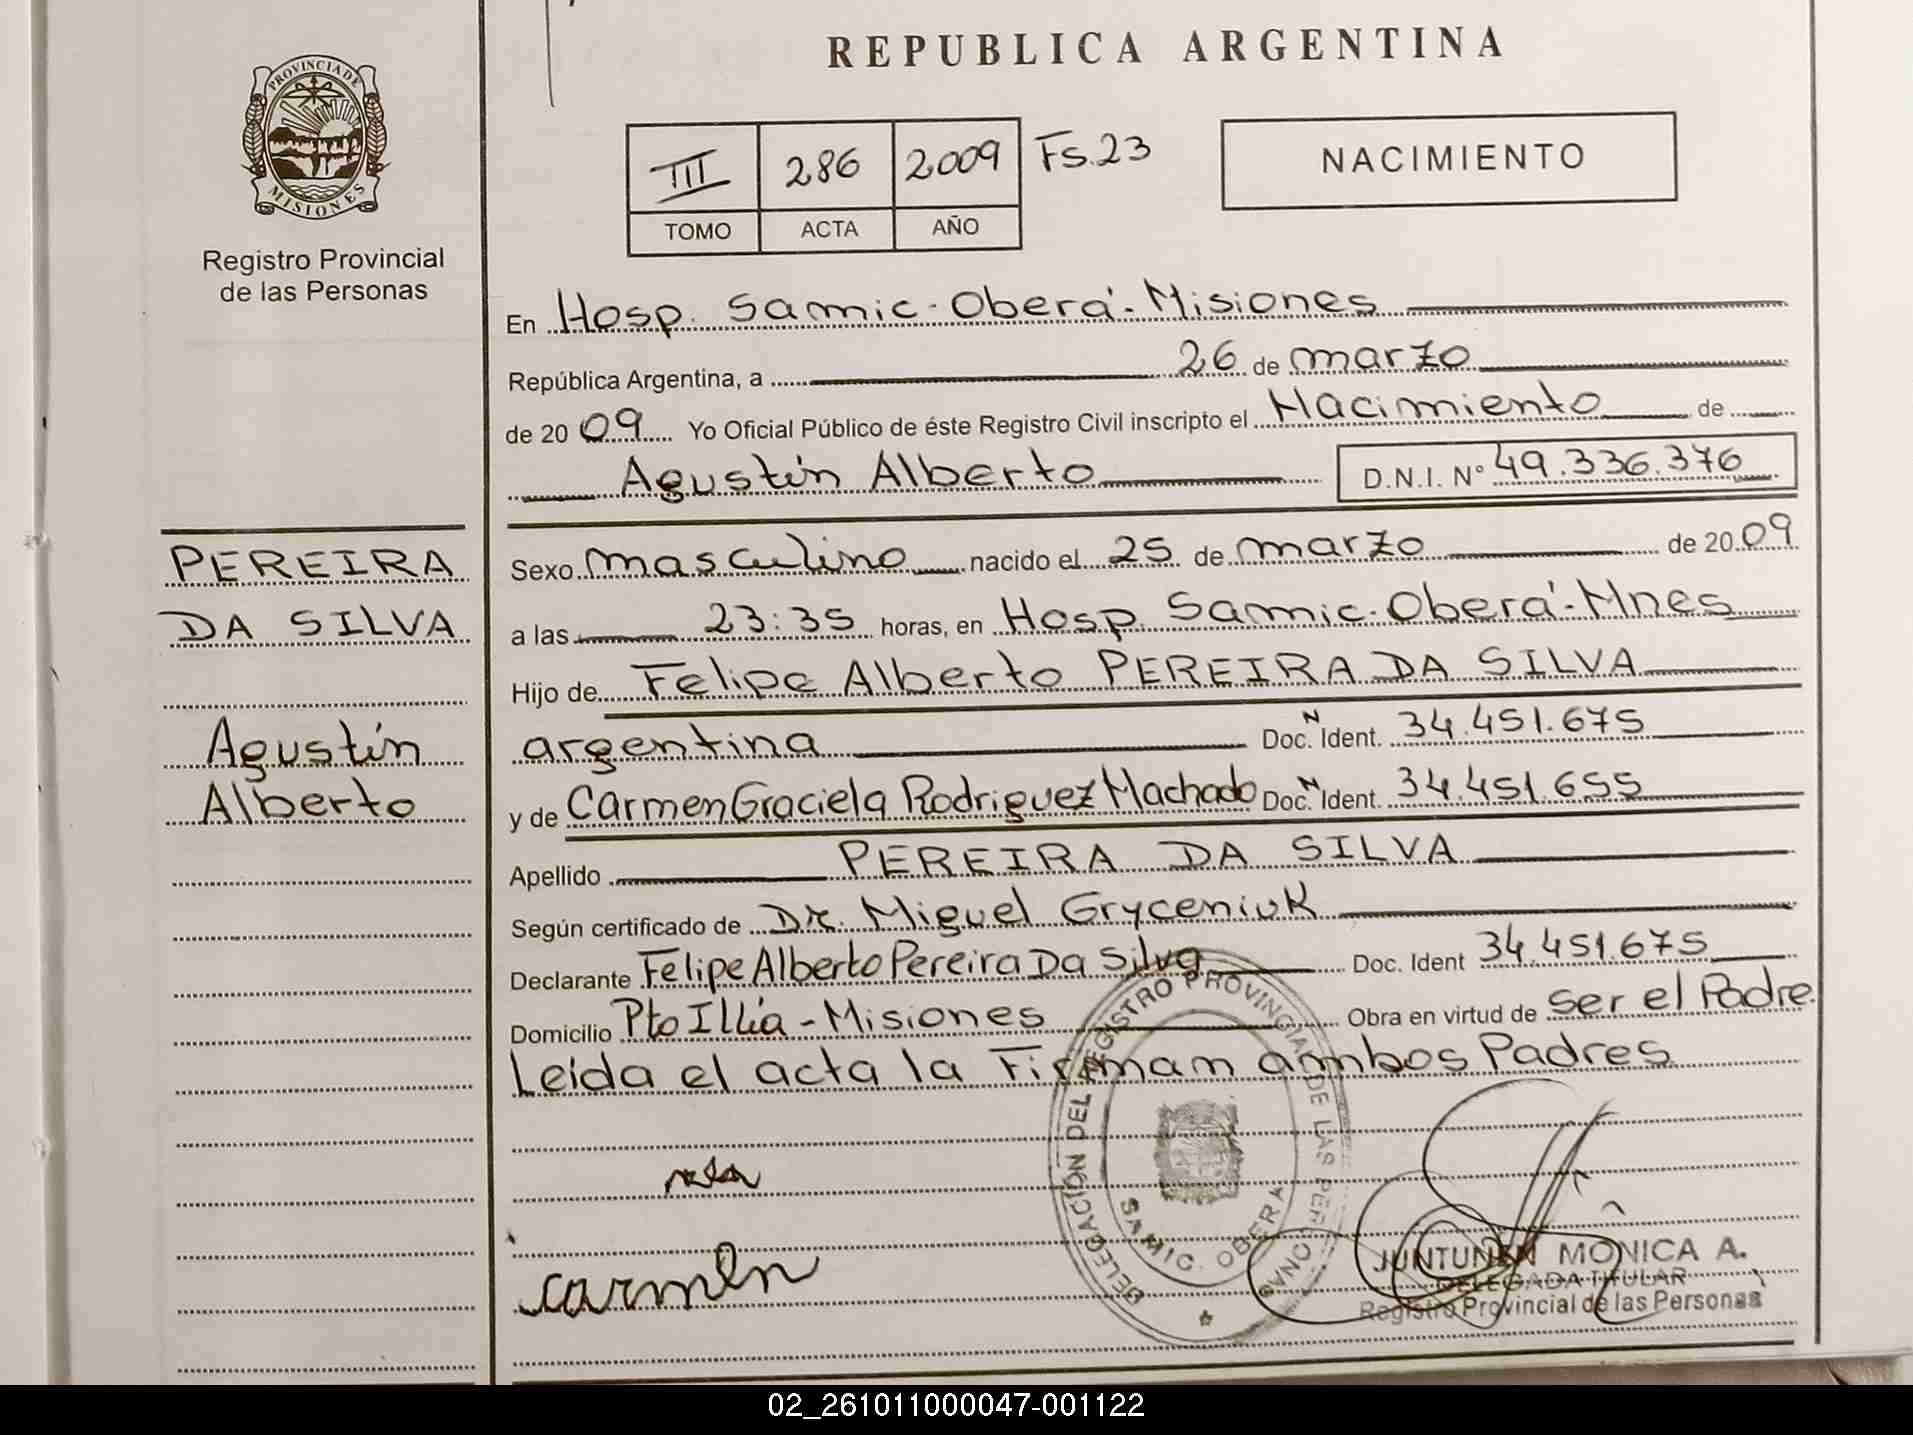 REPUBLICA ARGENTINA
PROVINCIA DE
MISIONES
Registro Provincial
de las Personas
III 286 2009 Fs.23
TOMO ACTA AÑO
NACIMIENTO
En Hosp. Samic - Oberá - Misiones
República Argentina, a 26 de marzo
de 20 09 Yo Oficial Público de éste Registro Civil inscripto el Nacimiento de
Agustín Alberto D.N.I. Nº 49.336.376
PEREIRA
DA SILVA
Agustín
Alberto
Sexo masculino nacido el 25 de marzo de 20 09
a las 23:35 horas, en Hosp. Samic - Oberá - Mnes
Hijo de Felipe Alberto PEREIRA DA SILVA
argentina Doc. N Ident. 34.451.675
y de Carmen Graciela Rodriguez Machado Doc. N Ident. 34.451.655
Apellido PEREIRA DA SILVA
Según certificado de Dr. Miguel Gryceniuk
Declarante Felipe Alberto Pereira Da Silva Doc. Ident 34.451.675
Domicilio Pto Illia - Misiones Obra en virtud de ser el Padre.
Leída el acta la Firman ambos Padres
DELEGACIÓN DEL REGISTRO PROVINCIAL DE LAS PERSONAS
SAMIC. OBERA
carmen
JUNTUNEN MONICA A.
DELEGADA TITULAR
Registro Provincial de las Personas
02_261011000047-001122